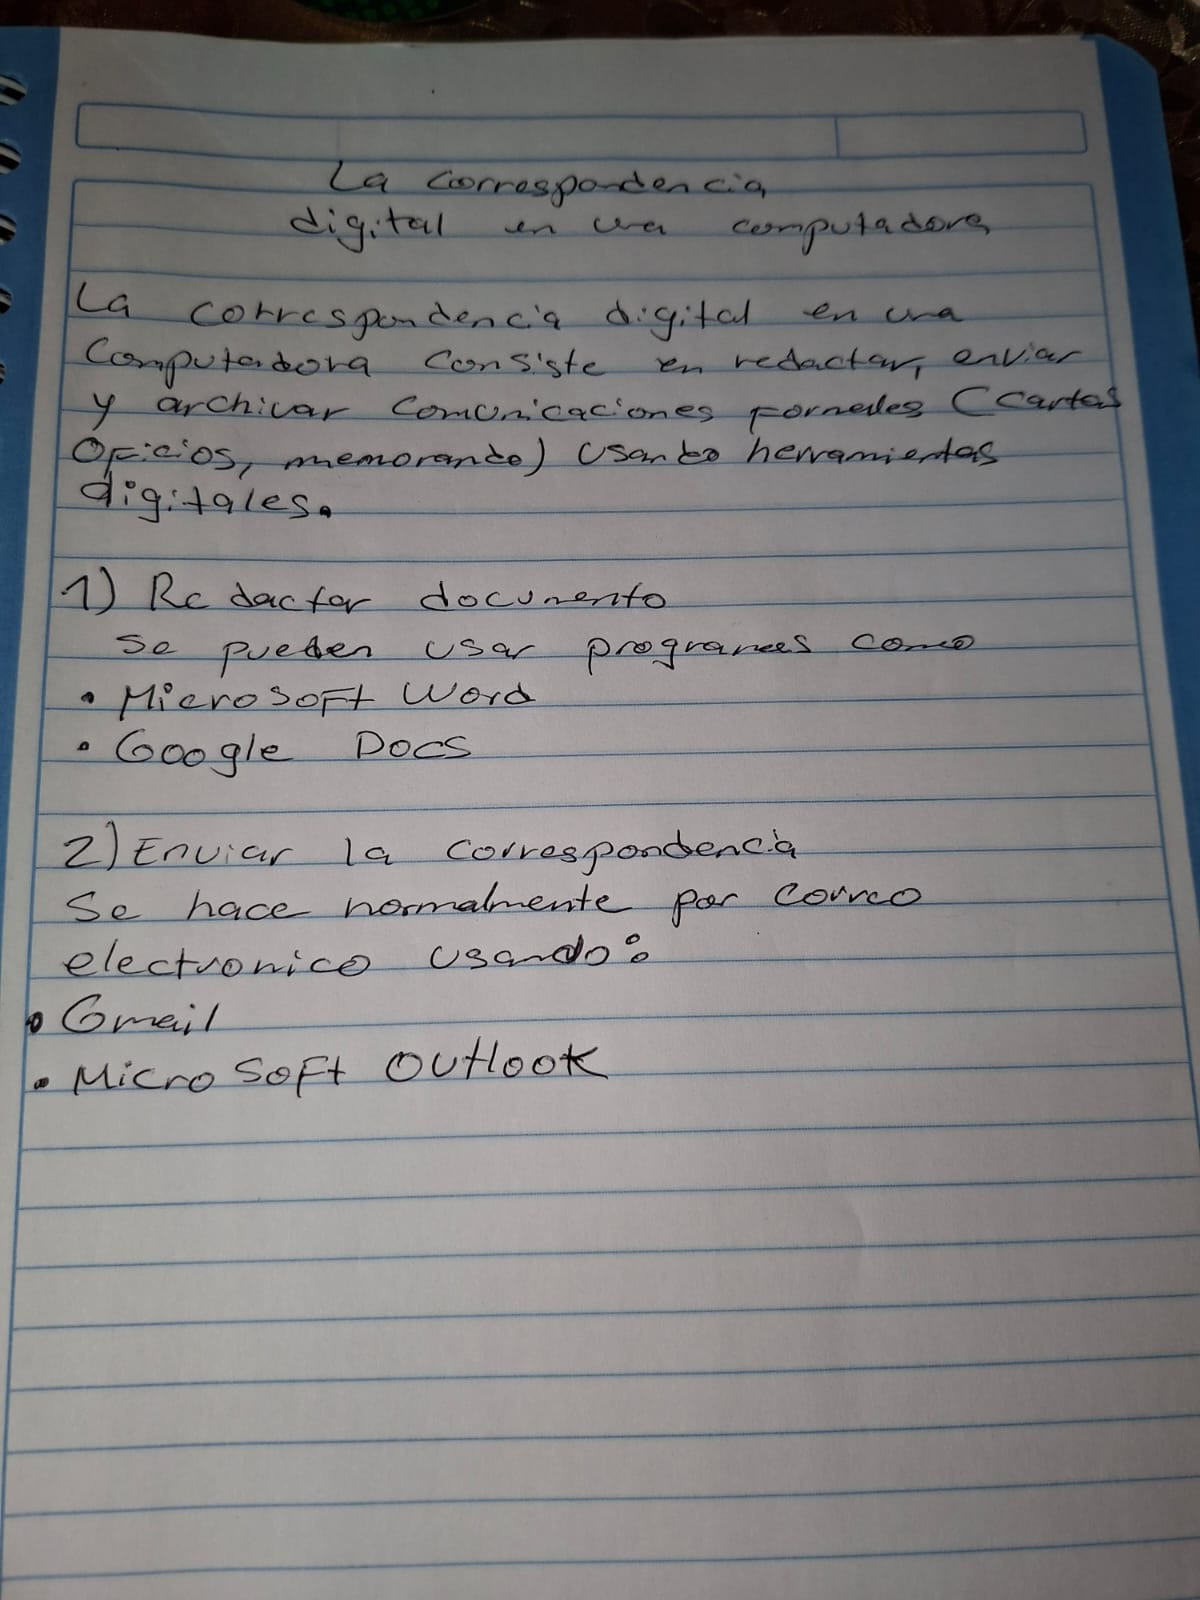 La correspondencia
digital en una computadora
La correspondencia digital en una
Computadora consiste en redactar, enviar
y archivar comunicaciones formales (Cartas
Oficios, memorando) usando herramientas
digitales.
1) Redactar documento
se pueden usar programas como
• Microsoft Word
• Google Docs
2) Enviar la correspondencia
Se hace normalmente por correo
electronico usando:
• Gmail
• Microsoft Outlook